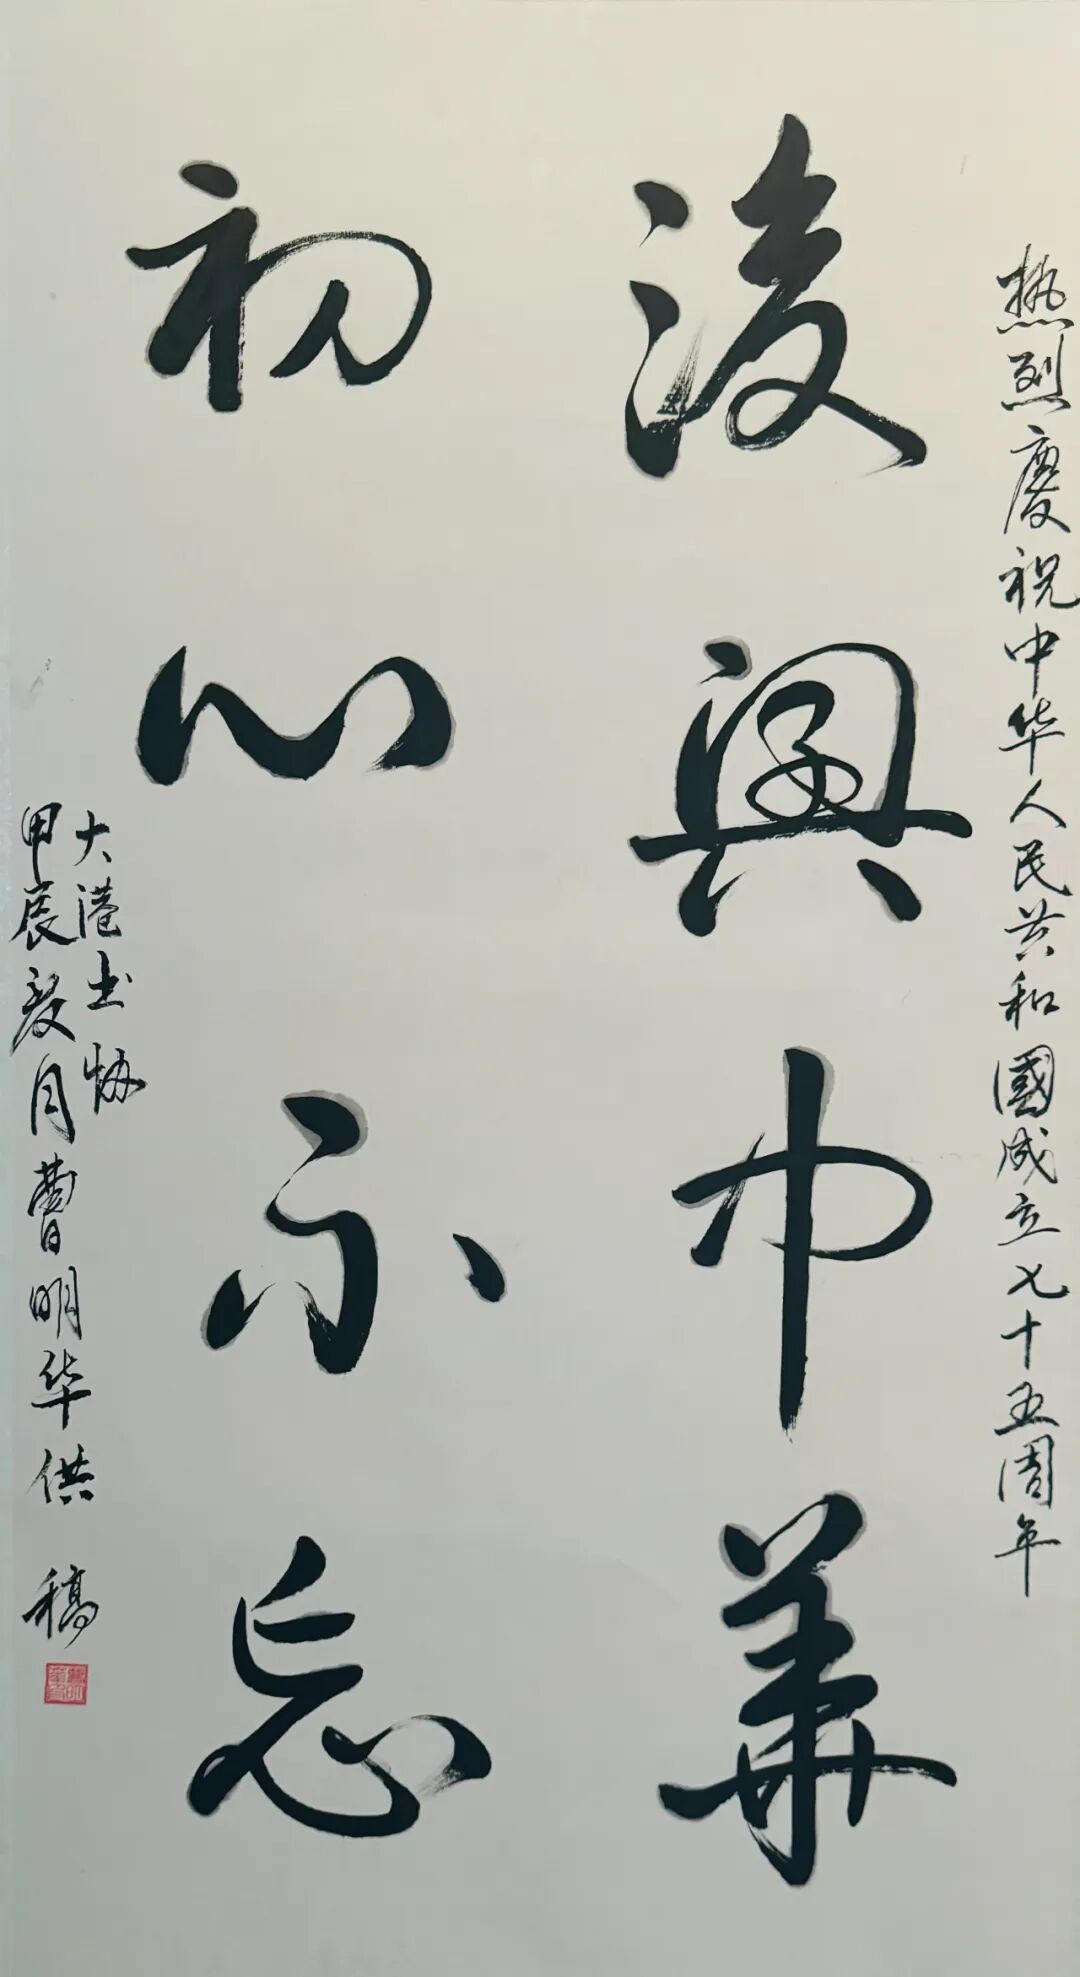 热烈慶祝中华人民共和國成立七十五周年
復興中華
初心不忘
大港书协
甲辰夏月曹明华供稿